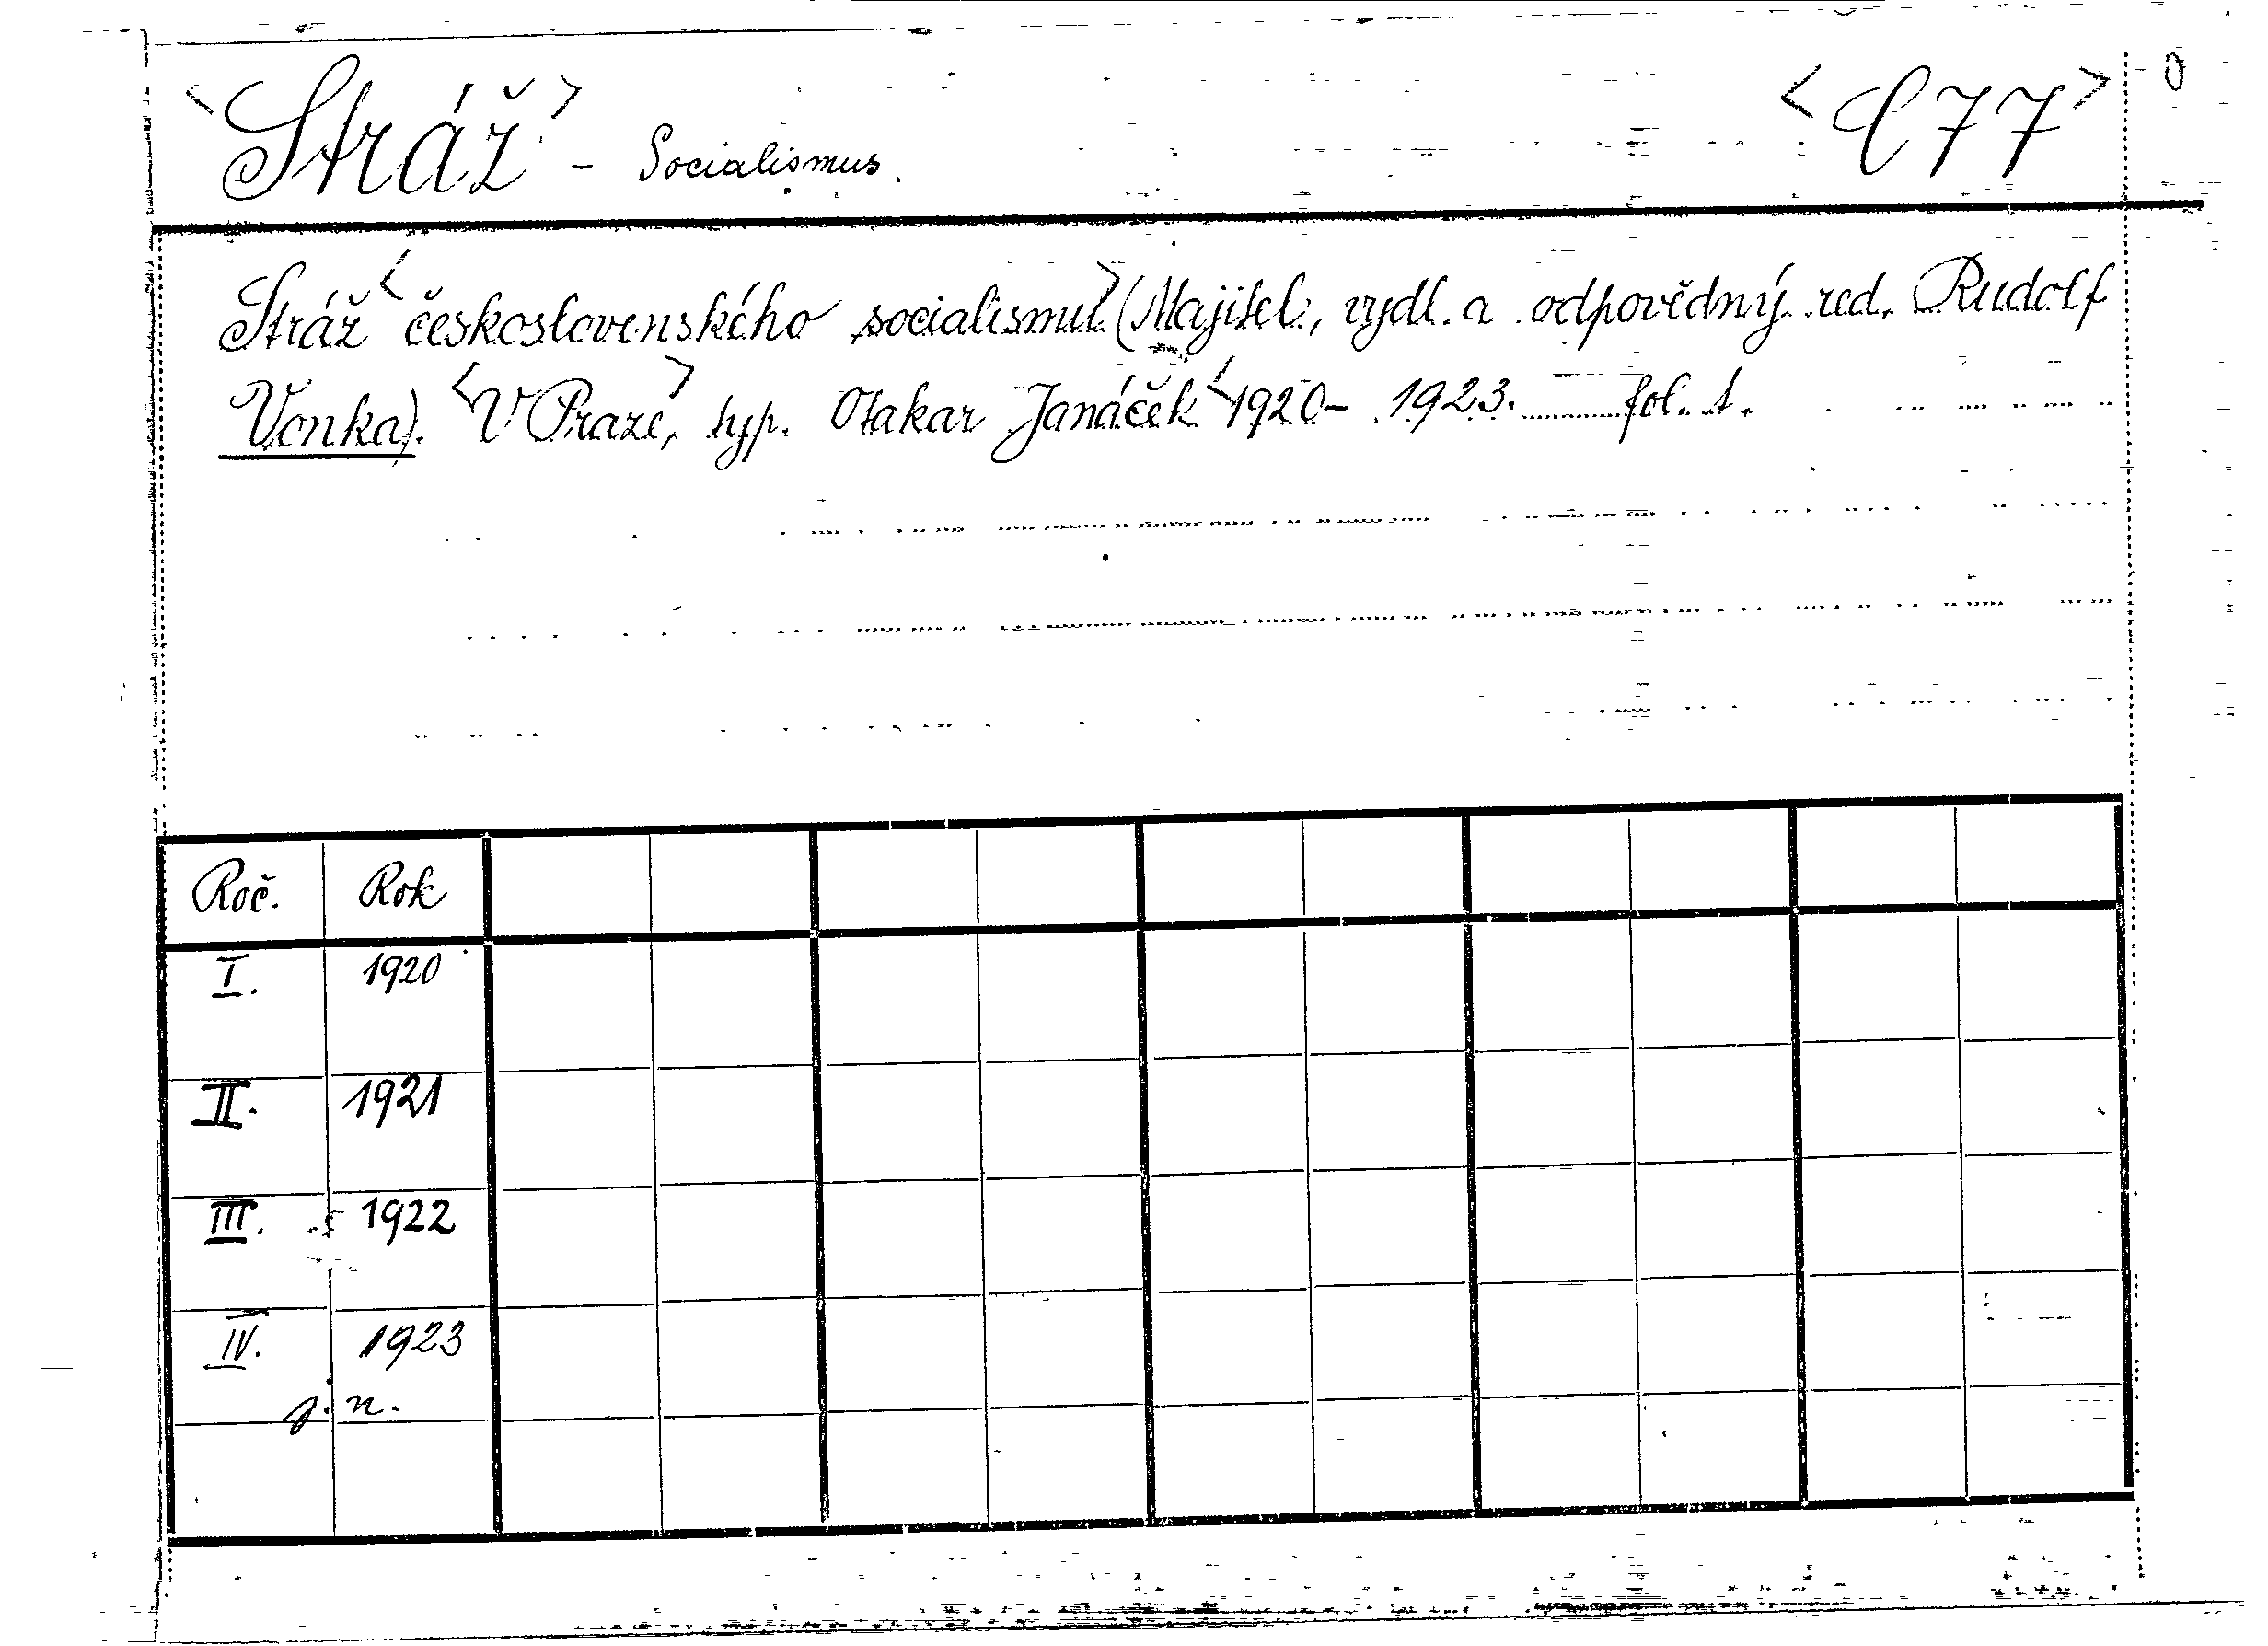 <Stráž> - Socialismus. <C 77> 0
Stráž <československého socialismu> (Majitel, vydl. a odpovědný red. Rudolf
Vonka). <V Praze>, typ. Otakar Janáček <1920- 1923. fol. 1.
Roč. Rok
I. 1920
II. 1921
III. 1922
IV. 1923
j. n.